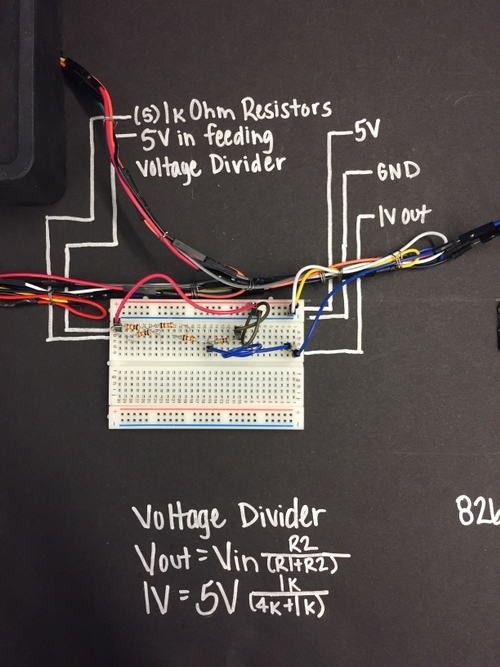 (5) 1k Ohm Resistors
5V in feeding
Voltage Divider
5V
GND
1V out
Voltage Divider
Vout = Vin R2
(R1+R2)
1V = 5V 1K
(4K+1K)
826